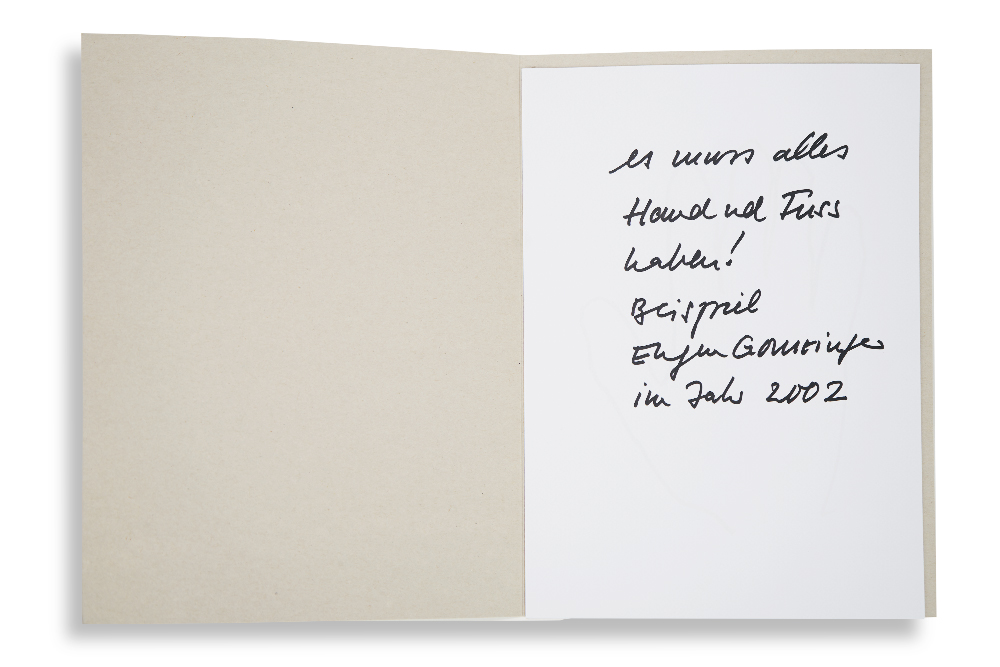 es muss alles
Hand und Fuss
haben!
Beispiel
Eugen Gomringer
im Jahr 2002